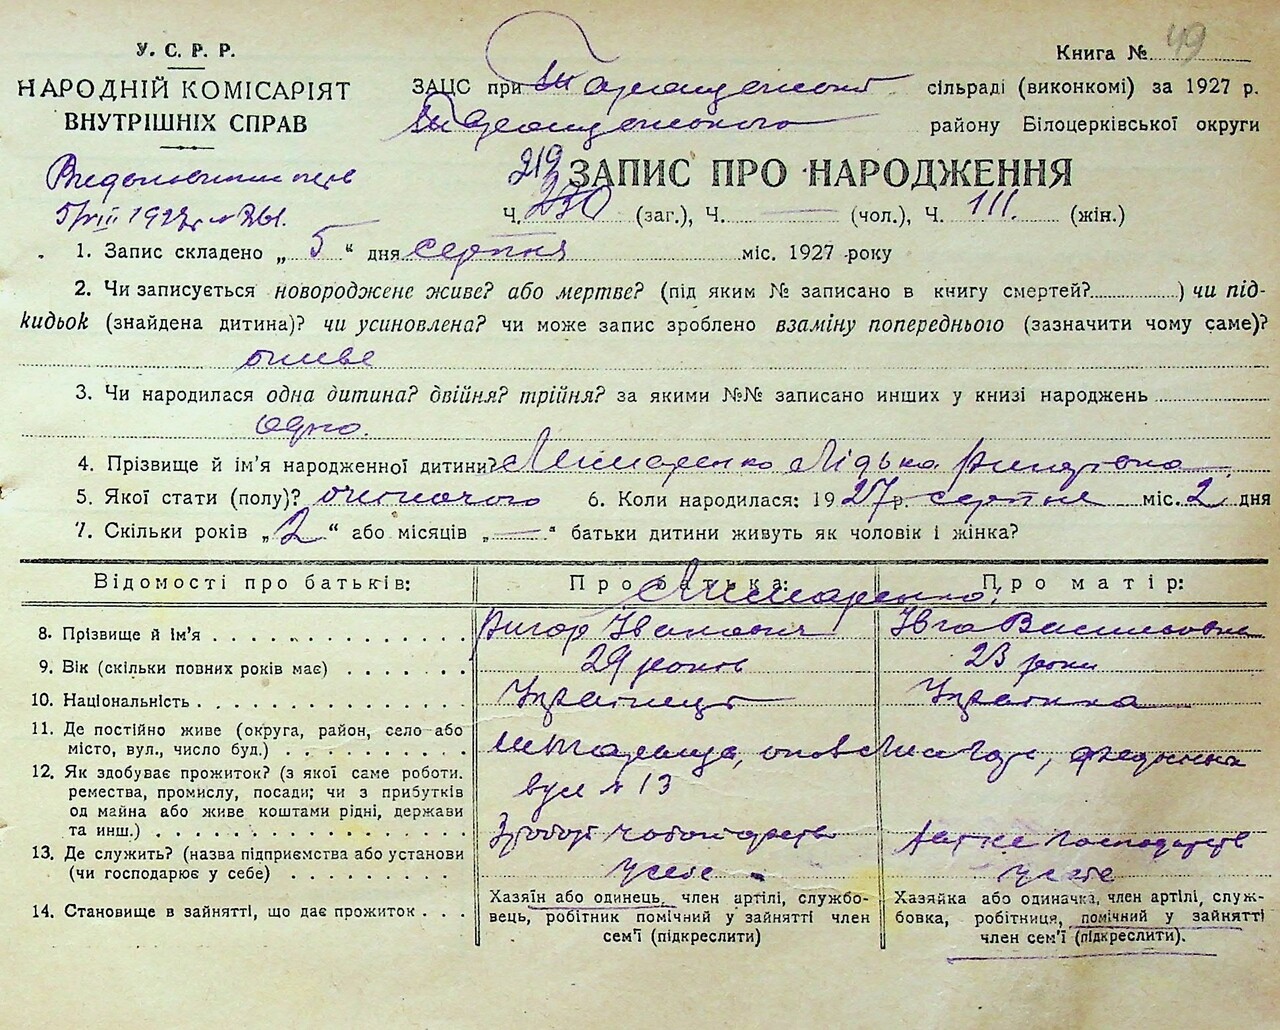 У. С. Р. Р.
НАРОДНІЙ КОМІСАРІЯТ
ВНУТРІШНІХ СПРАВ
Книга № 49
ЗАЦС при Таращанській сільраді (виконкомі) за 1927 р.
Таращанського району Білоцерківської округи
5/VIII 1927 р № 261.
ЗАПИС ПРО НАРОДЖЕННЯ
219
Ч. 230 (заг.), Ч. — (чол.), Ч. 111. (жін.)
1. Запис складено „ 5 “ дня серпня міс. 1927 року
2. Чи записується новороджене живе? або мертве? (під яким № записано в книгу смертей?) чи під-
кидьок (знайдена дитина)? чи усиновлена? чи може запис зроблено взаміну попереднього (зазначити чому саме)?
живе
3. Чи народилася одна дитина? двійня? трійня? за якими №№ записано инших у книзі народжень
одно.
4. Прізвище й ім'я народженної дитини? Лимаренко Лідька
5. Якої стати (полу)? жіночого 6. Коли народилася: 1927 р. серпня міс. 2 дня
7. Скільки років „ 2 “ або місяців „ — “ батьки дитини живуть як чоловік і жінка?
Відомості про батьків: Про батька: Про матір:
Лимаренко
8. Прізвище й ім'я Іванович Ївга Васильовна
9. Вік (скільки повних років має) 29 років 23 роки
10. Національність Українець Українка
11. Де постійно живе (округа, район, село або
місто, вул., число буд.)
вул № 13
12. Як здобуває прожиток? (з якої саме роботи.
ремества, промислу, посади; чи з прибутків
од майна або живе коштами рідні, держави
та инш.) чоботарство господарств
13. Де служить? (назва підприємства або установи
(чи господарює у себе) у себе у себе
14. Становище в зайнятті, що дає прожиток
Хазяїн або одинець, член артілі, службо-
вець, робітник помічний у зайнятті член
сем'ї (підкреслити)
Хазяйка або одиначка, член артілі, служ-
бовка, робітниця, помічний у зайнятті
член сем'ї (підкреслити).